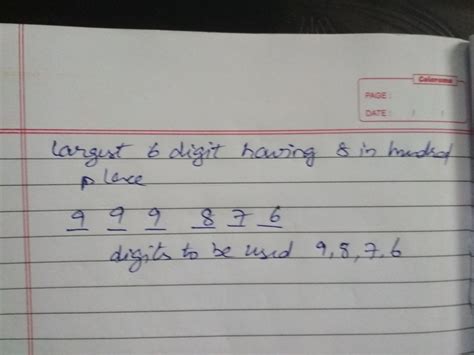 Colorama
PAGE :
DATE : / /
largest 6 digit having 8 in hundred
place
9 9 9 8 7 6
digits to be used 9,8,7,6